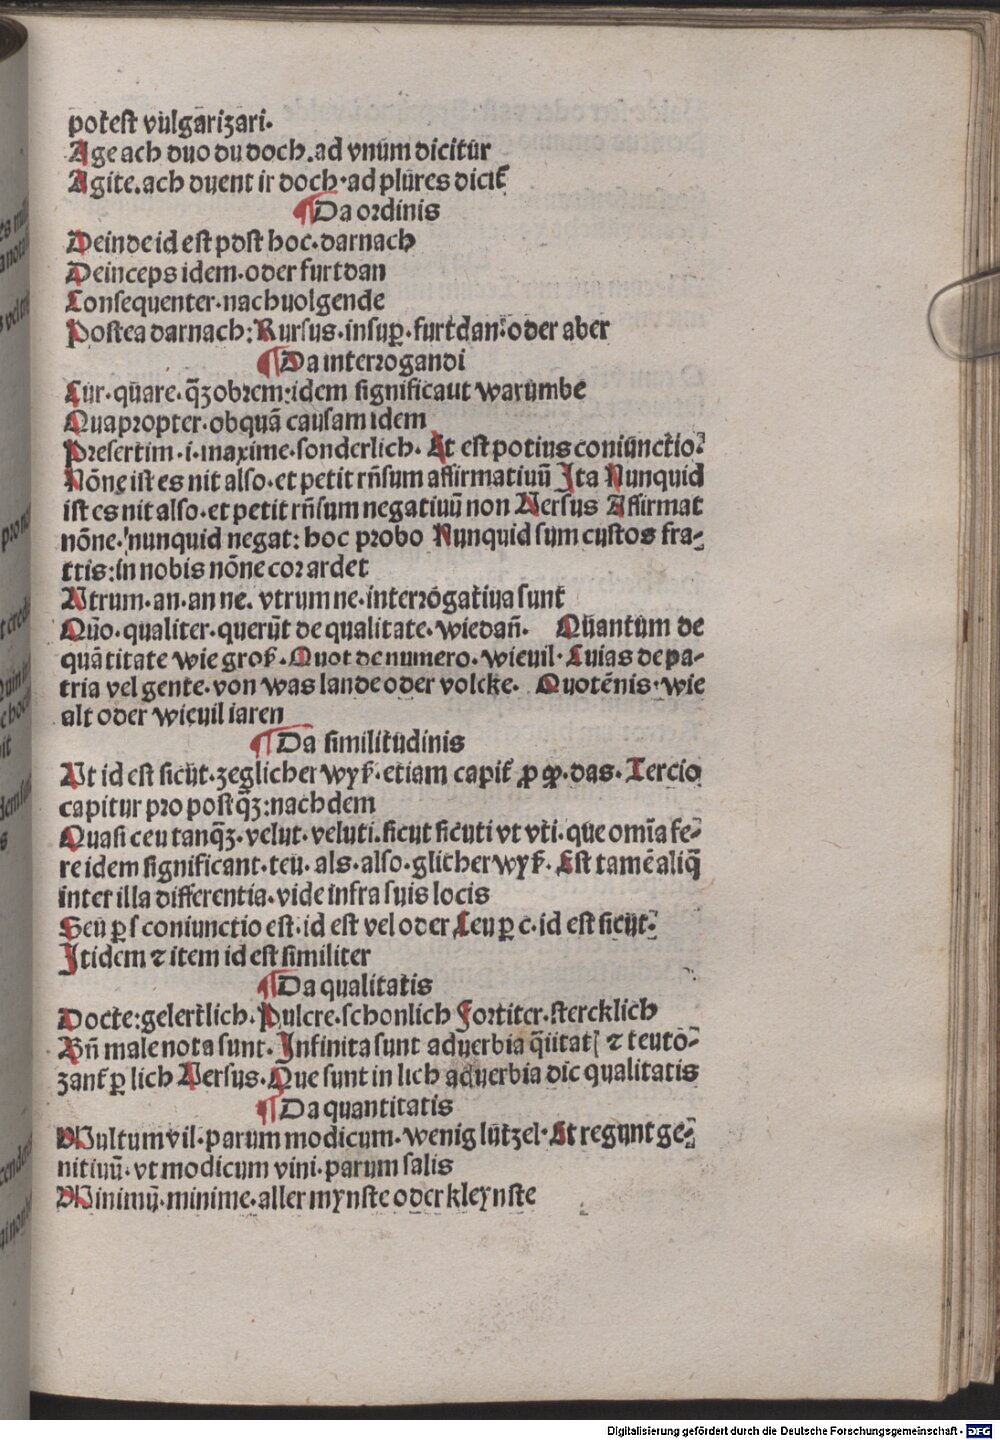 poteſt vulgarizari.
Age ach duo du doch.ad vnum dicitur
Agite.ach duent ir doch.ad plures dicit᷑
¶Da ordinis
Deinde id eſt poſt hoc.darnach
Deinceps idem.oder furt dan
Conſequenter.nachuolgende
Poſtea darnach: Rurſus.inſuꝑ.furt dan: oder aber
¶Da interrogandi
Cur.quare.q̄ꝫobrem:idem ſignificant warumbe
Quapropter.ob quā cauſam idem
Preſertim.i.maxime.ſonderlich. At eſt potius coniunctio:
Nōne iſt es nit alſo.et petit rn̄ſum affirmatiuū Ita Nunquid
iſt es nit alſo.et petit rn̄ſum negatiuū non Verſus Affirmat
nōne.nunquid negat: hoc probo Nunquid ſum cuſtos fra⸗
tris:in nobis nōne cor ardet
Vtrum.an.an ne. vtrum ne.interrogatiua ſunt
Quo.qualiter.querūt de qualitate.wie dan̄. Quantum de
quātitate wie groſz.Quot de numero.wieuil.Cuias de pa⸗
tria vel gente.von was lande oder volcke. Quotēnis.wie
alt oder wieuil iaren
¶Da ſimilitudinis
Vt id eſt ſicut.zeglicher wyſz.etiam capit᷑ ꝓ ꝙ.das.Tercio
capitur pro poſtq̄ꝫ:nachdem
Quaſi ceu tanq̄ꝫ.velut.veluti.ſicut ſicuti vt vti.que om̄ia fe⸗
re idem ſignificant.teu. als.alſo.glicher wyſz. Eſt tamē aliq̄
inter illa differentia.vide infra ſuis locis
Seu ꝑ ſ coniunctio eſt.id eſt vel oder Ceu ꝑ c.id eſt ſicut:
Itidem ⁊ item id eſt ſimiliter
¶Da qualitatis
Docte:gelertlich.Pulcre.ſchonlich Fortiter.ſtercklich
Bn̄ male nota ſunt. Infinita ſunt aduerbia q̄litat[ ⁊ teutō⸗
zant᷑ ꝑ lich Verſus.Que ſunt in lich aduerbia dic qualitatis
¶Da quantitatis
Multum vil.parum modicum.wenig lutzel.Et regunt ge⸗
nitiuū.vt modicum vini.parum ſalis
Minimū.minime.aller mynſte oder kleynſte
Digitalisierung gefördert durch die Deutsche Forschungsgemeinschaft - DFG